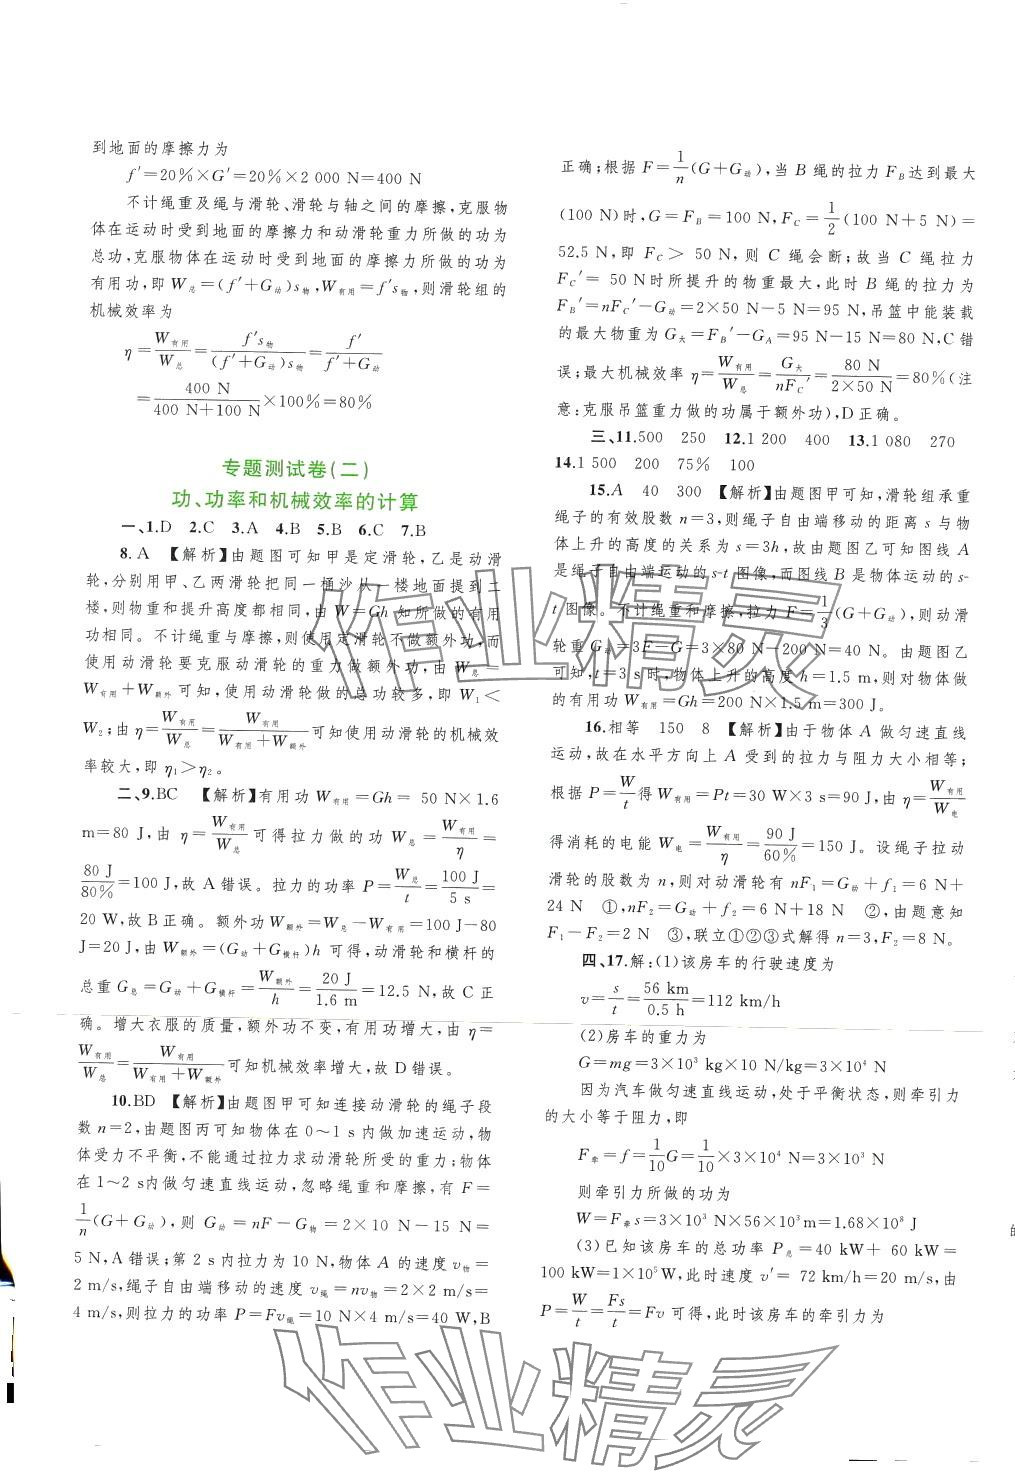 到地面的摩擦力为
f′=20%×G′=20%×2 000 N=400 N
不计绳重及绳与滑轮、滑轮与轴之间的摩擦,克服物
体在运动时受到地面的摩擦力和动滑轮重力所做的功为
总功,克服物体在运动时受到地面的摩擦力所做的功为
有用功,即 W总=(f′+G动)s物,W有用=f′s物,则滑轮组的
机械效率为
η=W有用/W总=f′s物/(f′+G动)s物=f′/(f′+G动)
=400 N/(400 N+100 N)×100%=80%
专题测试卷(二)
功、功率和机械效率的计算
一、1.D 2.C 3.A 4.B 5.B 6.C 7.B
8.A 【解析】由题图可知甲是定滑轮,乙是动滑
轮,分别用甲、乙两滑轮把同一桶沙从一楼地面提到二
楼,则物重和提升高度都相同,由 W=Gh 知所做的有用
功相同。不计绳重与摩擦,则使用定滑轮不做额外功,而
使用动滑轮要克服动滑轮的重力做额外功,由 W总=
W有用+W额外可知,使用动滑轮做的总功较多,即 W₁<
W₂;由 η=W有用/W总=W有用/(W有用+W额外)可知使用动滑轮的机械效
率较大,即 η₁>η₂。
二、9.BC 【解析】有用功 W有用=Gh= 50 N×1.6
m=80 J,由 η=W有用/W总可得拉力做的功 W总=W有用/η=
80 J/80%=100 J,故 A 错误。拉力的功率 P=W总/t=100 J/5 s=
20 W,故 B 正确。额外功 W额外=W总-W有用=100 J-80
J=20 J,由 W额外=(G动+G横杆)h 可得,动滑轮和横杆的
总重 G总=G动+G横杆=W额外/h=20 J/1.6 m=12.5 N,故 C 正
确。增大衣服的质量,额外功不变,有用功增大,由 η=
W有用/W总=W有用/(W有用+W额外)可知机械效率增大,故 D 错误。
10.BD 【解析】由题图甲可知连接动滑轮的绳子段
数 n=2,由题图丙可知物体在 0～1 s 内做加速运动,物
体受力不平衡,不能通过拉力求动滑轮所受的重力;物体
在 1～2 s内做匀速直线运动,忽略绳重和摩擦,有 F=
1/n(G+G动),则 G动=nF-G物=2×10 N-15 N=
5 N,A 错误;第 2 s 内拉力为 10 N,物体 A 的速度 v物=
2 m/s,绳子自由端移动的速度 v绳=nv物=2×2 m/s=
4 m/s,则拉力的功率 P=Fv绳=10 N×4 m/s=40 W,B
正确;根据 F=1/n(G+G动),当 B 绳的拉力 F_B 达到最大
(100 N)时,G=F_B=100 N,F_C=1/2(100 N+5 N)=
52.5 N,即 F_C> 50 N,则 C 绳会断;故当 C 绳拉力
F_C′= 50 N时所提升的物重最大,此时 B 绳的拉力为
F_B′=nF_C′-G动=2×50 N-5 N=95 N,吊篮中能装载
的最大物重为 G大=F_B′-G_A=95 N-15 N=80 N,C 错
误;最大机械效率 η=W有用/W总=G大/nF_C′=80 N/(2×50 N)=80%(注
意:克服吊篮重力做的功属于额外功),D 正确。
三、11.500 250 12.1 200 400 13.1 080 270
14.1 500 200 75% 100
15.A 40 300 【解析】由题图甲可知,滑轮组承重
绳子的有效股数 n=3,则绳子自由端移动的距离 s 与物
体上升的高度的关系为 s=3h,故由题图乙可知图线 A
是绳子自由端运动的 s-t 图像,而图线 B 是物体运动的 s-
t 图像。不计绳重和摩擦,拉力 F=1/3(G+G动),则动滑
轮重 G动=3F-G=3×80 N-200 N=40 N。由题图乙
可知,t=3 s 时,物体上升的高度 h=1.5 m,则对物体做
的有用功 W有用=Gh=200 N×1.5 m=300 J。
16.相等 150 8 【解析】由于物体 A 做匀速直线
运动,故在水平方向上 A 受到的拉力与阻力大小相等;
根据 P=W/t得 W有用=Pt=30 W×3 s=90 J,由 η=W有用/W电
得消耗的电能 W电=W有用/η=90 J/60%=150 J。设绳子拉动
滑轮的股数为 n,则对动滑轮有 nF₁=G动+f₁=6 N+
24 N ①,nF₂=G动+f₂=6 N+18 N ②,由题意知
F₁-F₂=2 N ③,联立①②③式解得 n=3,F₂=8 N。
四、17.解:(1)该房车的行驶速度为
v=s/t=56 km/0.5 h=112 km/h
(2)房车的重力为
G=mg=3×10³ kg×10 N/kg=3×10⁴ N
因为汽车做匀速直线运动,处于平衡状态,则牵引力
的大小等于阻力,即
F牵=f=1/10G=1/10×3×10⁴ N=3×10³ N
则牵引力所做的功为
W=F牵s=3×10³ N×56×10³m=1.68×10⁸ J
(3)已知该房车的总功率 P总=40 kW+ 60 kW=
100 kW=1×10⁵W,此时速度 v′= 72 km/h=20 m/s,由
P=W/t=Fs/t=Fv 可得,此时该房车的牵引力为
作业精灵
作业精灵